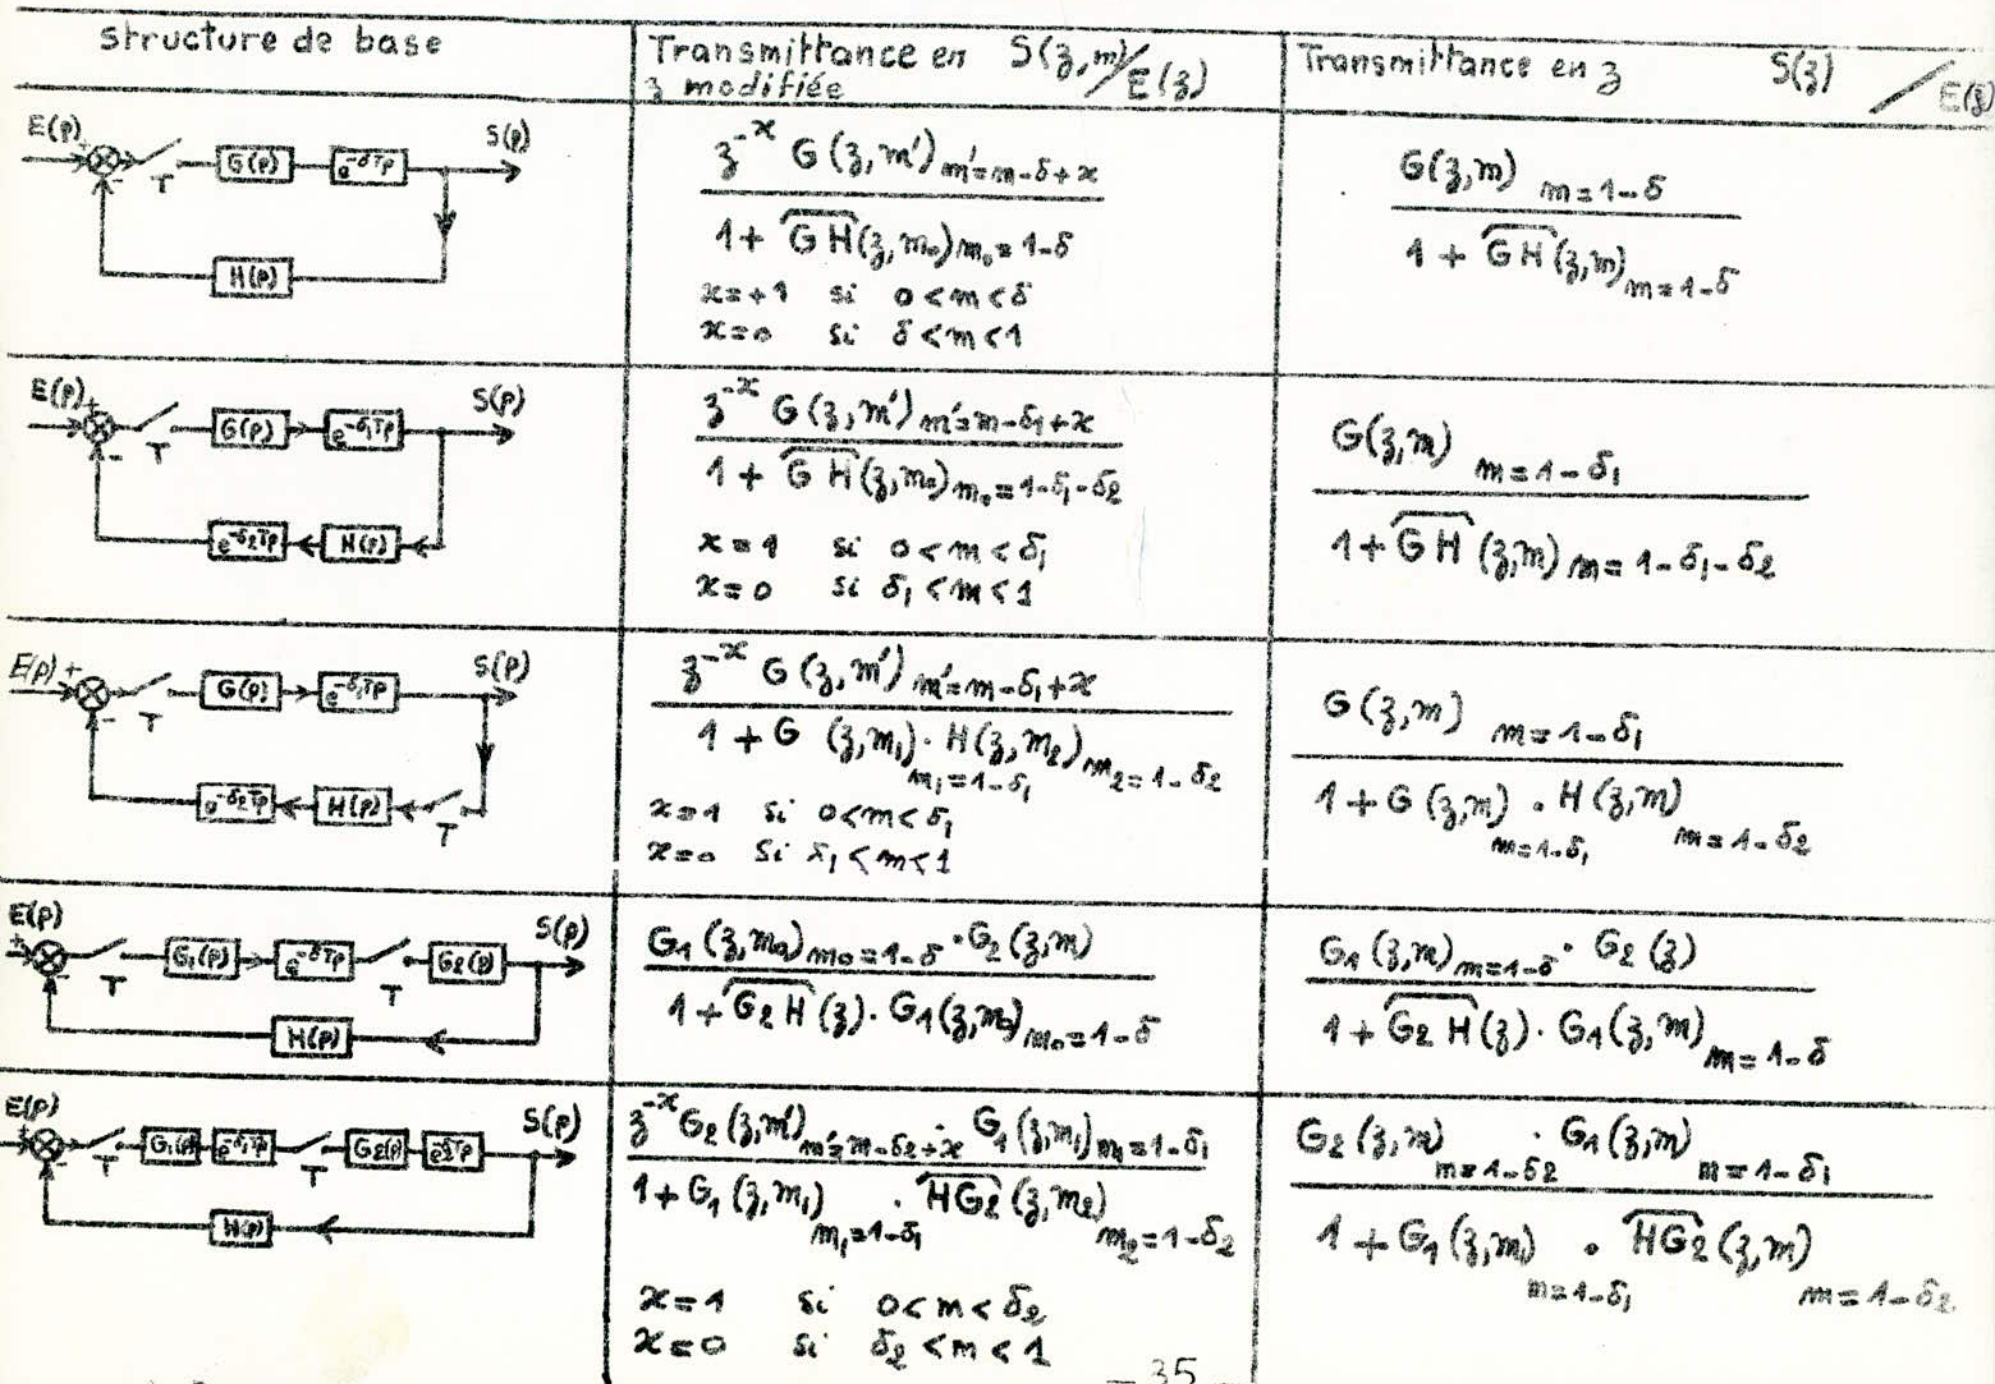 Structure de base
Transmittance en S(z,m)/E(z)
z modifiée
Transmittance en z S(z)/E(z)
E(p) + - T G(p) e^-δTp S(p)
H(p)
z^-x G(z,m') m'=m-δ+x
1 + GH(z,m₀) m₀=1-δ
x=+1 si 0<m<δ
x=0 si δ<m<1
G(z,m) m=1-δ
1 + GH(z,m) m=1-δ
E(p) + - T G(p) e^-δ₁Tp S(p)
e^-δ₂Tp H(p)
z^-x G(z,m') m'=m-δ₁+x
1 + GH(z,m₀) m₀=1-δ₁-δ₂
x=1 si 0<m<δ₁
x=0 si δ₁<m<1
G(z,m) m=1-δ₁
1 + GH(z,m) m=1-δ₁-δ₂
E(p) + - T G(p) e^-δ₁Tp S(p)
e^-δ₂Tp H(p) T
z^-x G(z,m') m'=m-δ₁+x
1 + G (z,m₁) . H(z,m₂) m₂=1-δ₂
m₁=1-δ₁
x=1 si 0<m<δ₁
x=0 si δ₁<m<1
G(z,m) m=1-δ₁
1 + G(z,m) . H(z,m)
m=1-δ₁ m=1-δ₂
E(p) + - T G₁(p) e^-δTp T G₂(p) S(p)
H(p)
G₁(z,m₀) m₀=1-δ . G₂(z,m)
1 + G₂H(z) . G₁(z,m₀) m₀=1-δ
G₁(z,m) m=1-δ . G₂(z)
1 + G₂H(z) . G₁(z,m) m=1-δ
E(p) + - T G₁(p) e^-δ₁Tp T G₂(p) S(p)
H(p)
z^-x G₂(z,m') m'=m-δ₂+x . G₁(z,m₁) m=1-δ₁
1 + G₁(z,m₁) . HG₂(z,m₂)
m₁=1-δ₁ m₂=1-δ₂
x=1 si 0<m<δ₂
x=0 si δ₂<m<1
G₂(z,m) m=1-δ₂ . G₁(z,m) m=1-δ₁
1 + G₁(z,m) . HG₂(z,m)
m=1-δ₁ m=1-δ₂
- 35 -